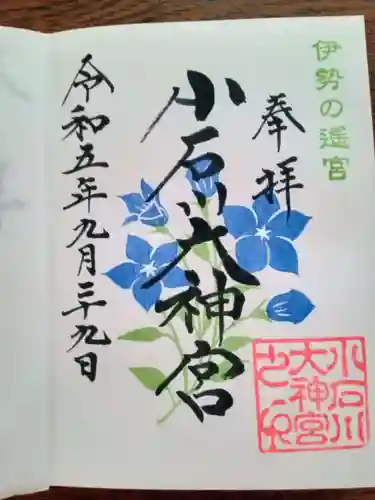 伊勢の遙宮
奉拝
小石川大神宮
令和五年九月二十九日
小石川
大神宮
之印